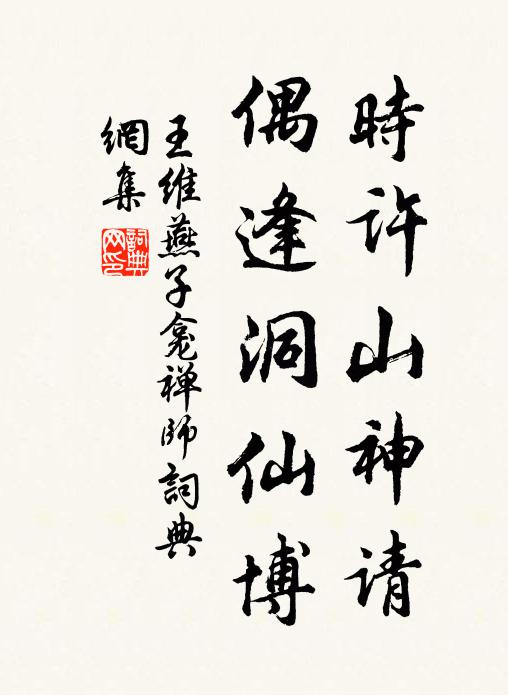 時许山神请
偶逢洞仙博
王維燕子龛禅师詞典
網集
詞典
网印